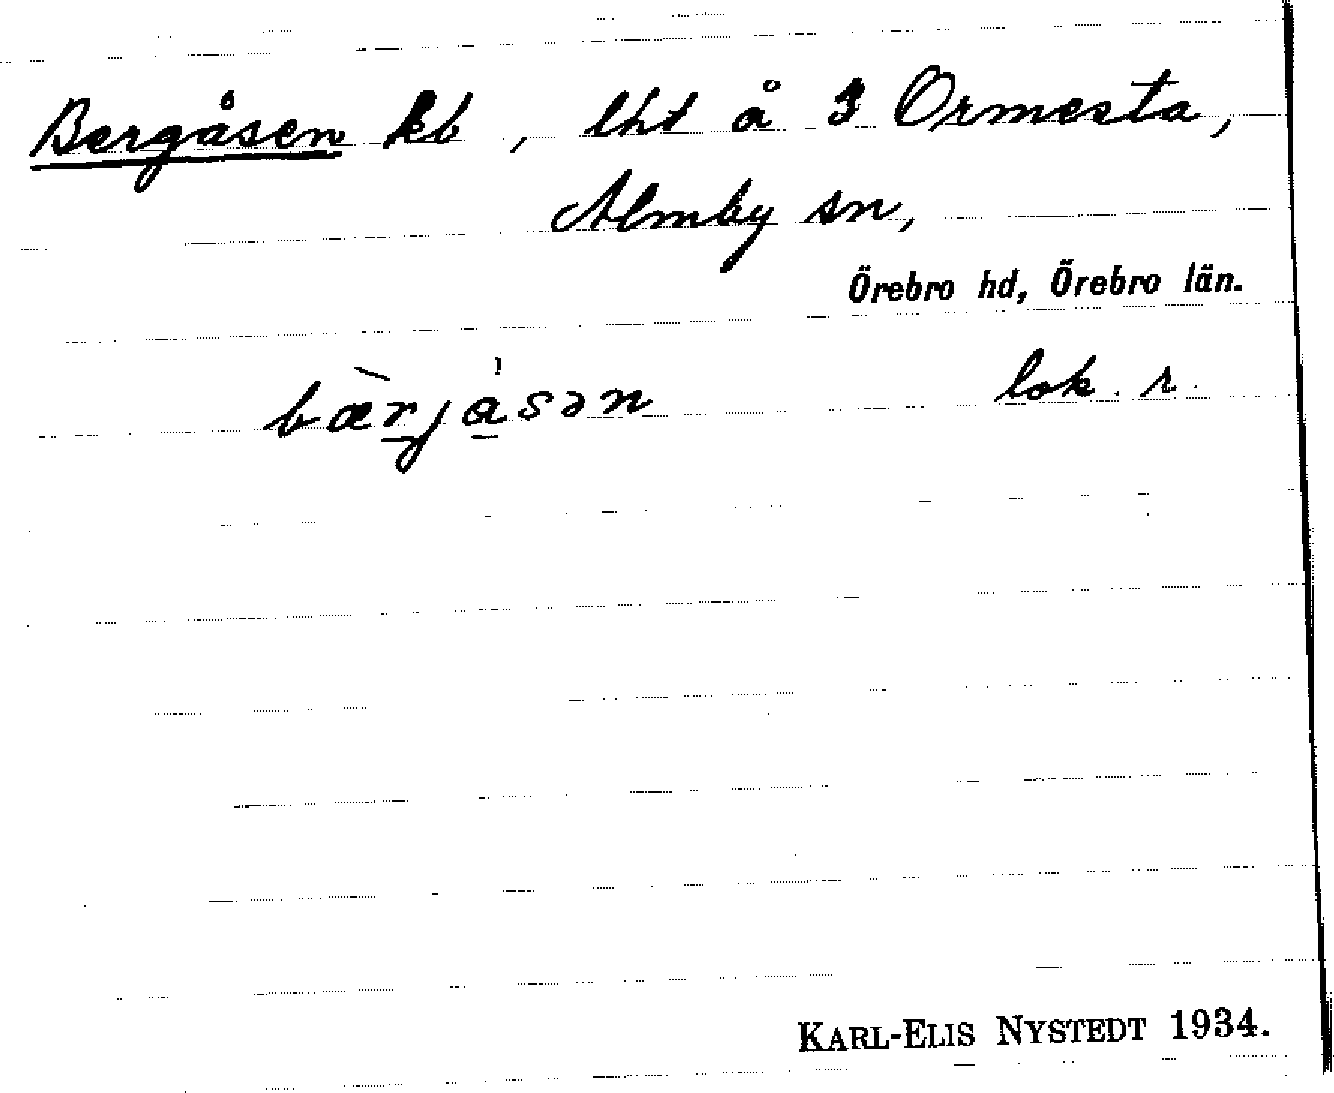 Bergåsen kb, lht å 3 Ormesta,
Almby sn,
Örebro hd, Örebro län.
bæ̀rjåsən lok. r.
KARL-ELIS NYSTEDT 1934.